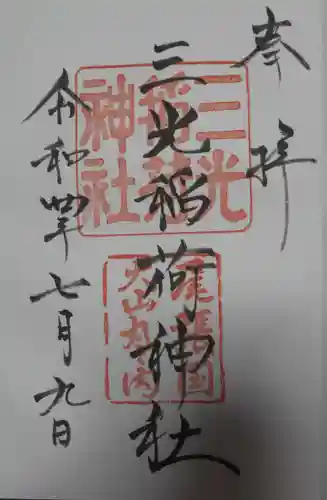 奉拝
三光稲荷神社
令和四年七月九日
三光
稲荷
神社
尾張国
犬山丸の内